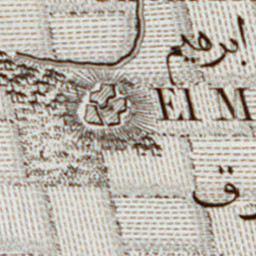 ابرهيم
El M